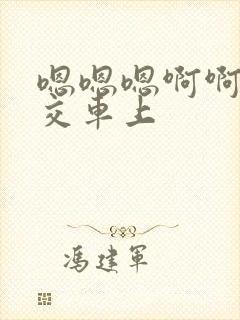 嗯嗯嗯啊啊
交车上
冯建军